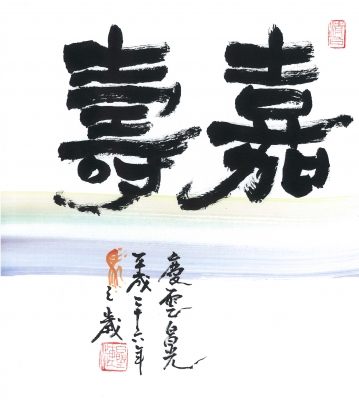 嘉壽
慶雲昌光
平成二十六年
之歳